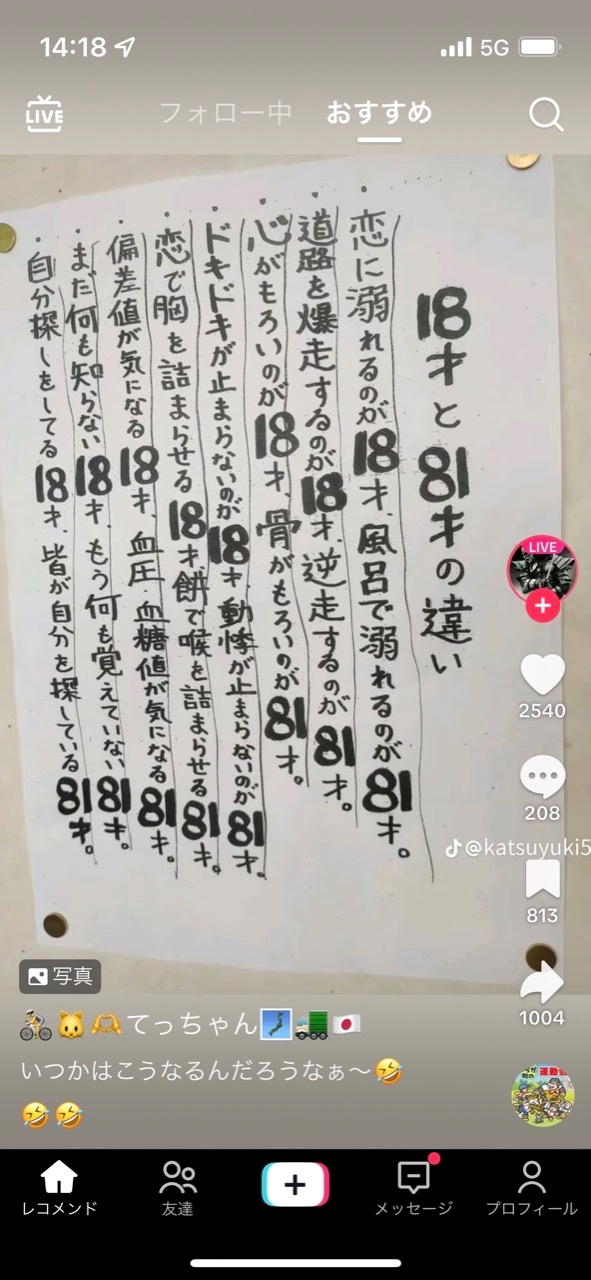 14:18
5G
LIVE
フォロー中
おすすめ
18才と81才の違い
恋に溺れるのが18才、風呂で溺れるのが81才。
道路を爆走するのが18才、逆走するのが81才。
心がもろいのが18才、骨がもろいのが81才。
ドキドキが止まらないのが18才、動悸が止まらないのが81才。
恋で胸を詰まらせる18才、餅で喉を詰まらせる81才。
偏差値が気になる18才、血圧・血糖値が気になる81才。
まだ何も知らない18才、もう何も覚えていない81才。
自分探しをしてる18才、皆が自分を探している81才。
LIVE
2540
208
@katsuyuki5
813
1004
写真
てっちゃん
いつかはこうなるんだろうなぁ〜🤣
🤣🤣
運動会
レコメンド
友達
メッセージ
プロフィール